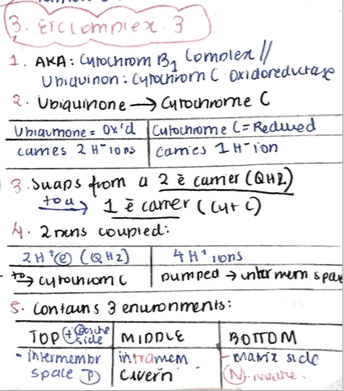 3. ETC Complex 3
1. AKA: Cytochrom B1 Complex //
Ubiquinon: Cytochrom C Oxidoreductase
2. Ubiquinone → Cytochrome C
Ubiqumone = Ox'd | Cytochrome C = Reduced
carries 2 H- ions | Carries 1 H- ion
3. Swaps from a 2 ē carrier (QH2)
to a 1 ē carrier (Cyt C)
4. 2 rxns coupled:
2H+ē (QH2) | 4 H+ ions
to → cytochrom C | Pumped → inter mem space
5. Contains 3 environments:
TOP + side | MIDDLE | BOTTOM
- intermembr | intramem | - matrix side
space P | Cavern | N